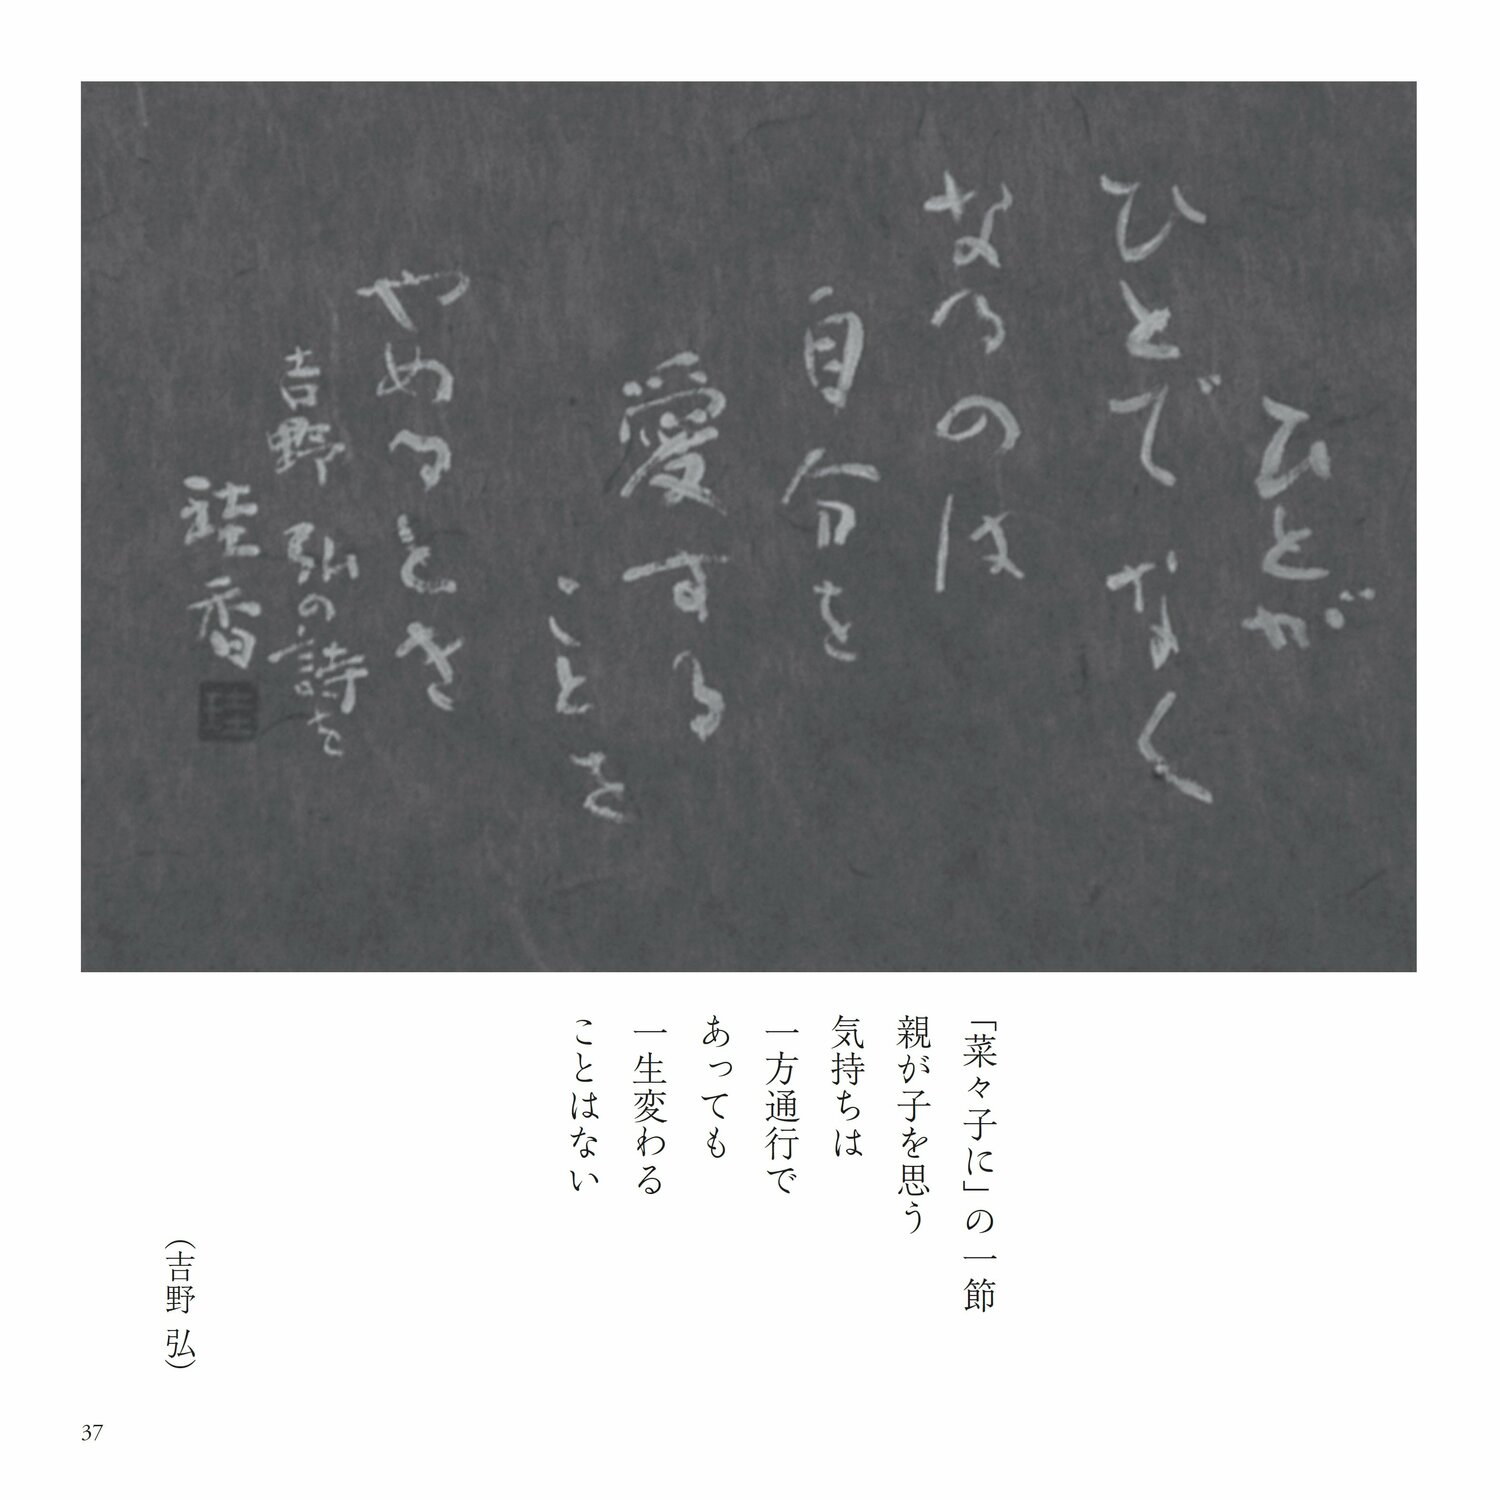 ひとが
ひとでなく
なるのは
自分を
愛する
ことを
やめるとき
吉野弘の詩を
珪香
「菜々子に」の一節
親が子を思う
気持ちは
一方通行で
あっても
一生変わる
ことはない
（吉野 弘）
37